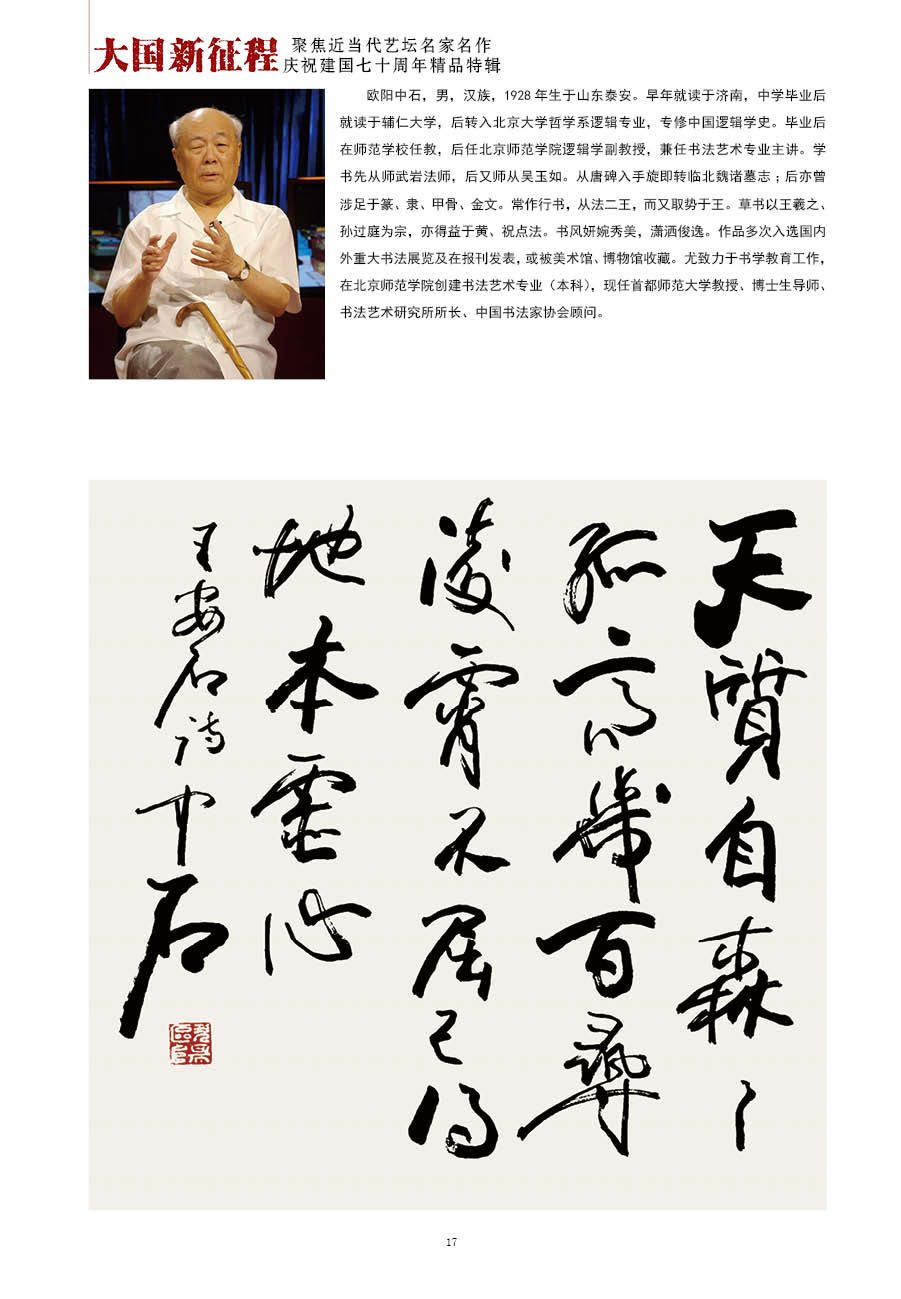 大国新征程
聚焦近当代艺坛名家名作
庆祝建国七十周年精品特辑
欧阳中石，男，汉族，1928年生于山东泰安。早年就读于济南，中学毕业后
就读于辅仁大学，后转入北京大学哲学系逻辑专业，专修中国逻辑学史。毕业后
在师范学校任教，后任北京师范学院逻辑学副教授，兼任书法艺术专业主讲。学
书先从师武岩法师，后又师从吴玉如。从唐碑入手旋即转临北魏诸墓志；后亦曾
涉足于篆、隶、甲骨、金文。常作行书，从法二王，而又取势于王。草书以王羲之、
孙过庭为宗，亦得益于黄、祝点法。书风妍婉秀美，潇洒俊逸。作品多次入选国内
外重大书法展览及在报刊发表，或被美术馆、博物馆收藏。尤致力于书学教育工作，
在北京师范学院创建书法艺术专业（本科），现任首都师范大学教授、博士生导师、
书法艺术研究所所长、中国书法家协会顾问。
天質自森〻
孤高幾百尋
淩霄不屈己得
地本虚心
王安石诗中石
17